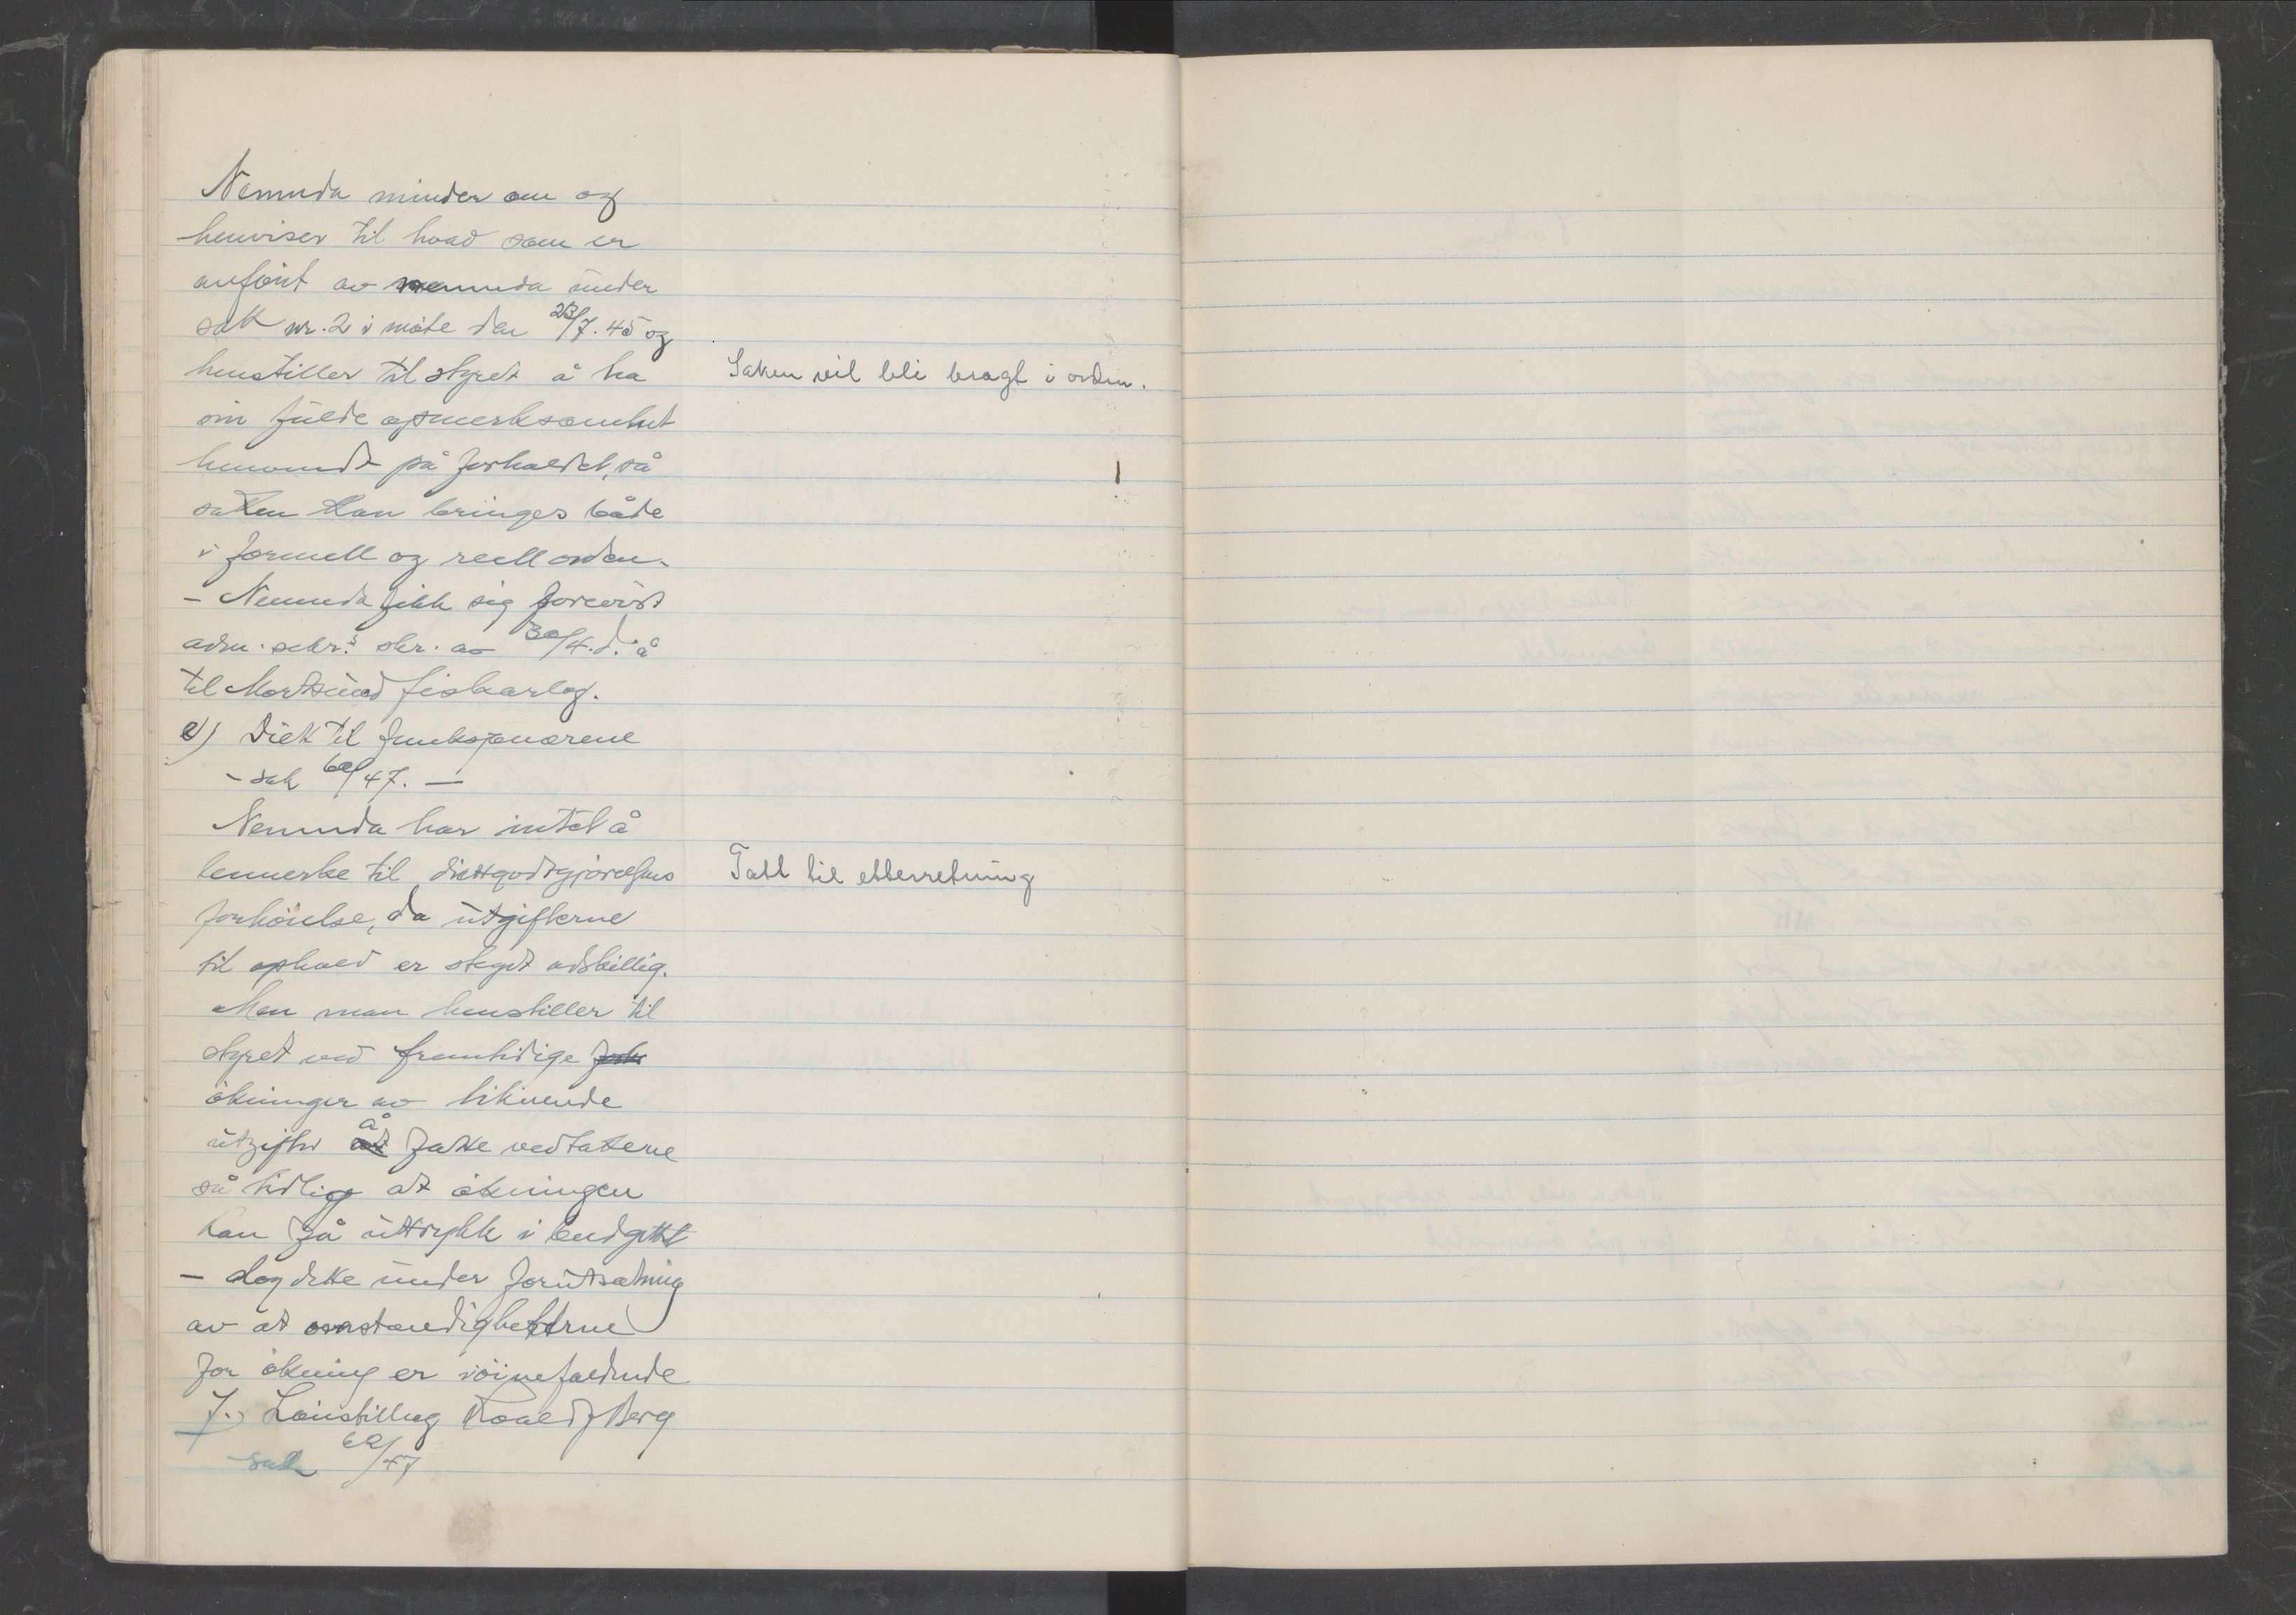 Nemnda minder om og
henviser til hvad som er
anført av nemnda under
sak nr. 2 i møte den 23/7. 45 og
henstiller til styret å ha
sin fulde opmerksomhet
henvendt på forholdet, så
saken kan bringes både
i formell og reell orden.
- Nemnda fikk sig forevist
adm. sekr.s skr. av 30/4. d. å
til Mortsund fiskarlag.
e) Diett til funksjonærene
- sak 60/47. -
Nemnda har intet å
bemerke til diettgodtgjørelsens
forhøielse, da utgifterne
til ophold er steget adskillig.
Men man henstiller til
styret ved fremtidige
økninger av liknende
utgifter å fatte vedtakene
så tidlig at økningen
kan få uttrykk i budgettet
- dog dette under forutsætning
av at omstændighetene
for økning er iøinefaldende
f.) Lønstilling Roald Berg
- sak 62/47
Saken vil bli bragt i orden.
Tatt til etterretning